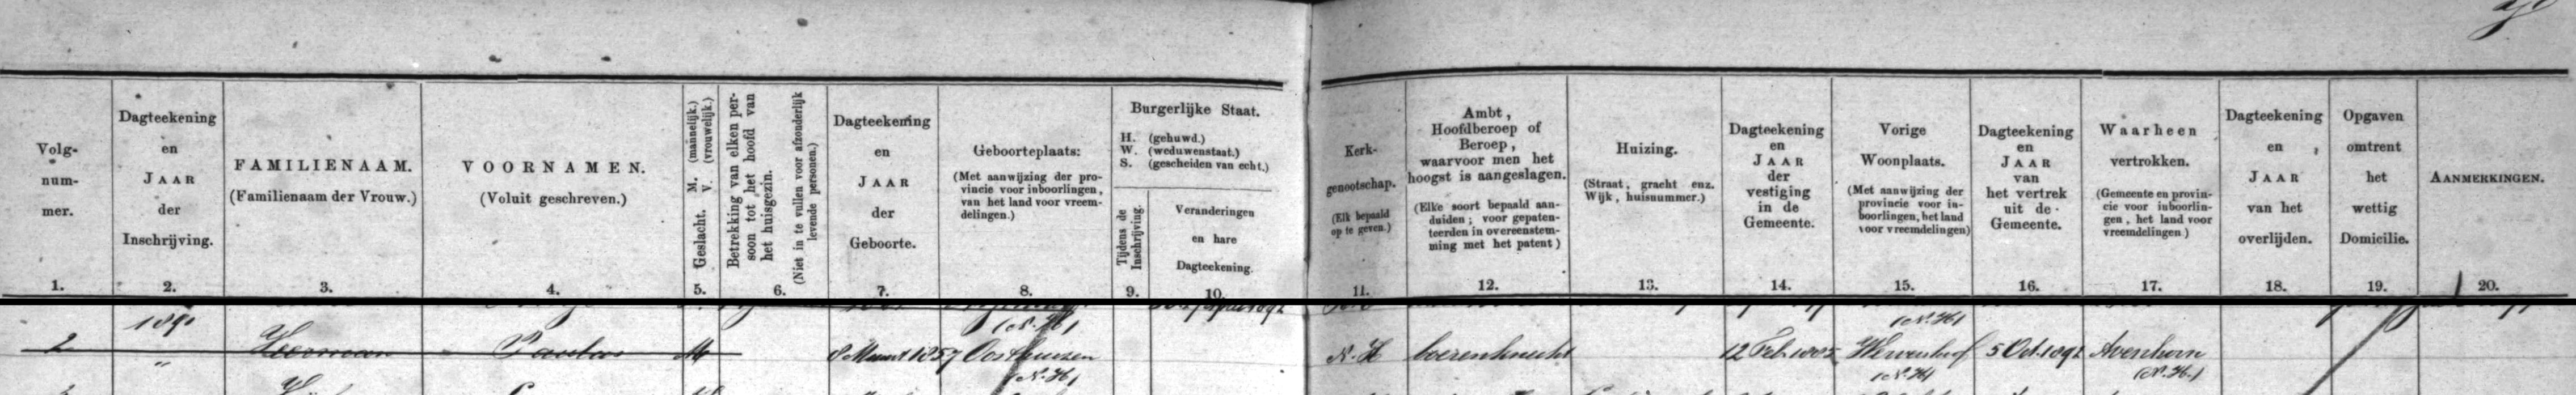 Volg-
num-
mer.
1.
Dagteekening
en
JAAR
der
Inschrijving.
2.
FAMILIENAAM.
(Familienaam der Vrouw.)
3.
VOORNAMEN.
(Voluit geschreven.)
4.
Geslacht. M. (mannelijk.)
V. (vrouwelijk.)
5.
Betrekking van elken per-
soon tot het hoofd van
het huisgezin.
(Niet in te vullen voor afzonderlijk
levende personen.)
6.
Dagteekening
en
JAAR
der
Geboorte.
7.
Geboorteplaats:
(Met aanwijzing der pro-
vincie voor inboorlingen,
van het land voor vreem-
delingen.)
8.
Burgerlijke Staat.
H. (gehuwd.)
W. (weduwenstaat.)
S. (gescheiden van echt.)
Tijdens de
Inschrijving.
9.
Veranderingen
en hare
Dagteekening.
10.
Kerk-
genootschap.
(Elk bepaald
op te geven.)
11.
Ambt,
Hoofdberoep of
Beroep,
waarvoor men het
hoogst is aangeslagen.
(Elke soort bepaald aan-
duiden; voor gepaten-
teerden in overeenstem-
ming met het patent)
12.
Huizing.
(Straat, gracht enz.
Wijk, huisnummer.)
13.
Dagteekening
en
JAAR
der
vestiging
in de
Gemeente.
14.
Vorige
Woonplaats.
(Met aanwijzing der
provincie voor in-
boorlingen, het land
voor vreemdelingen)
15.
Dagteekening
en
JAAR
van
het vertrek
uit de
Gemeente.
16.
Waarheen
vertrokken.
(Gemeente en provin-
cie voor inboorlin-
gen, het land voor
vreemdelingen.)
17.
Dagteekening
en
JAAR
van het
overlijden.
18.
Opgaven
omtrent
het
wettig
Domicilie.
19.
AANMERKINGEN.
20.
1890
(N.H)
(N.H)
2 " Paulus M 8 Maart 1857 Oosthuizen N.H boerenknecht 12 Feb. 1885 Wervershoof 5 Oct. 1892 Avenhorn
(N.H)
(N.H)
(N.H.)